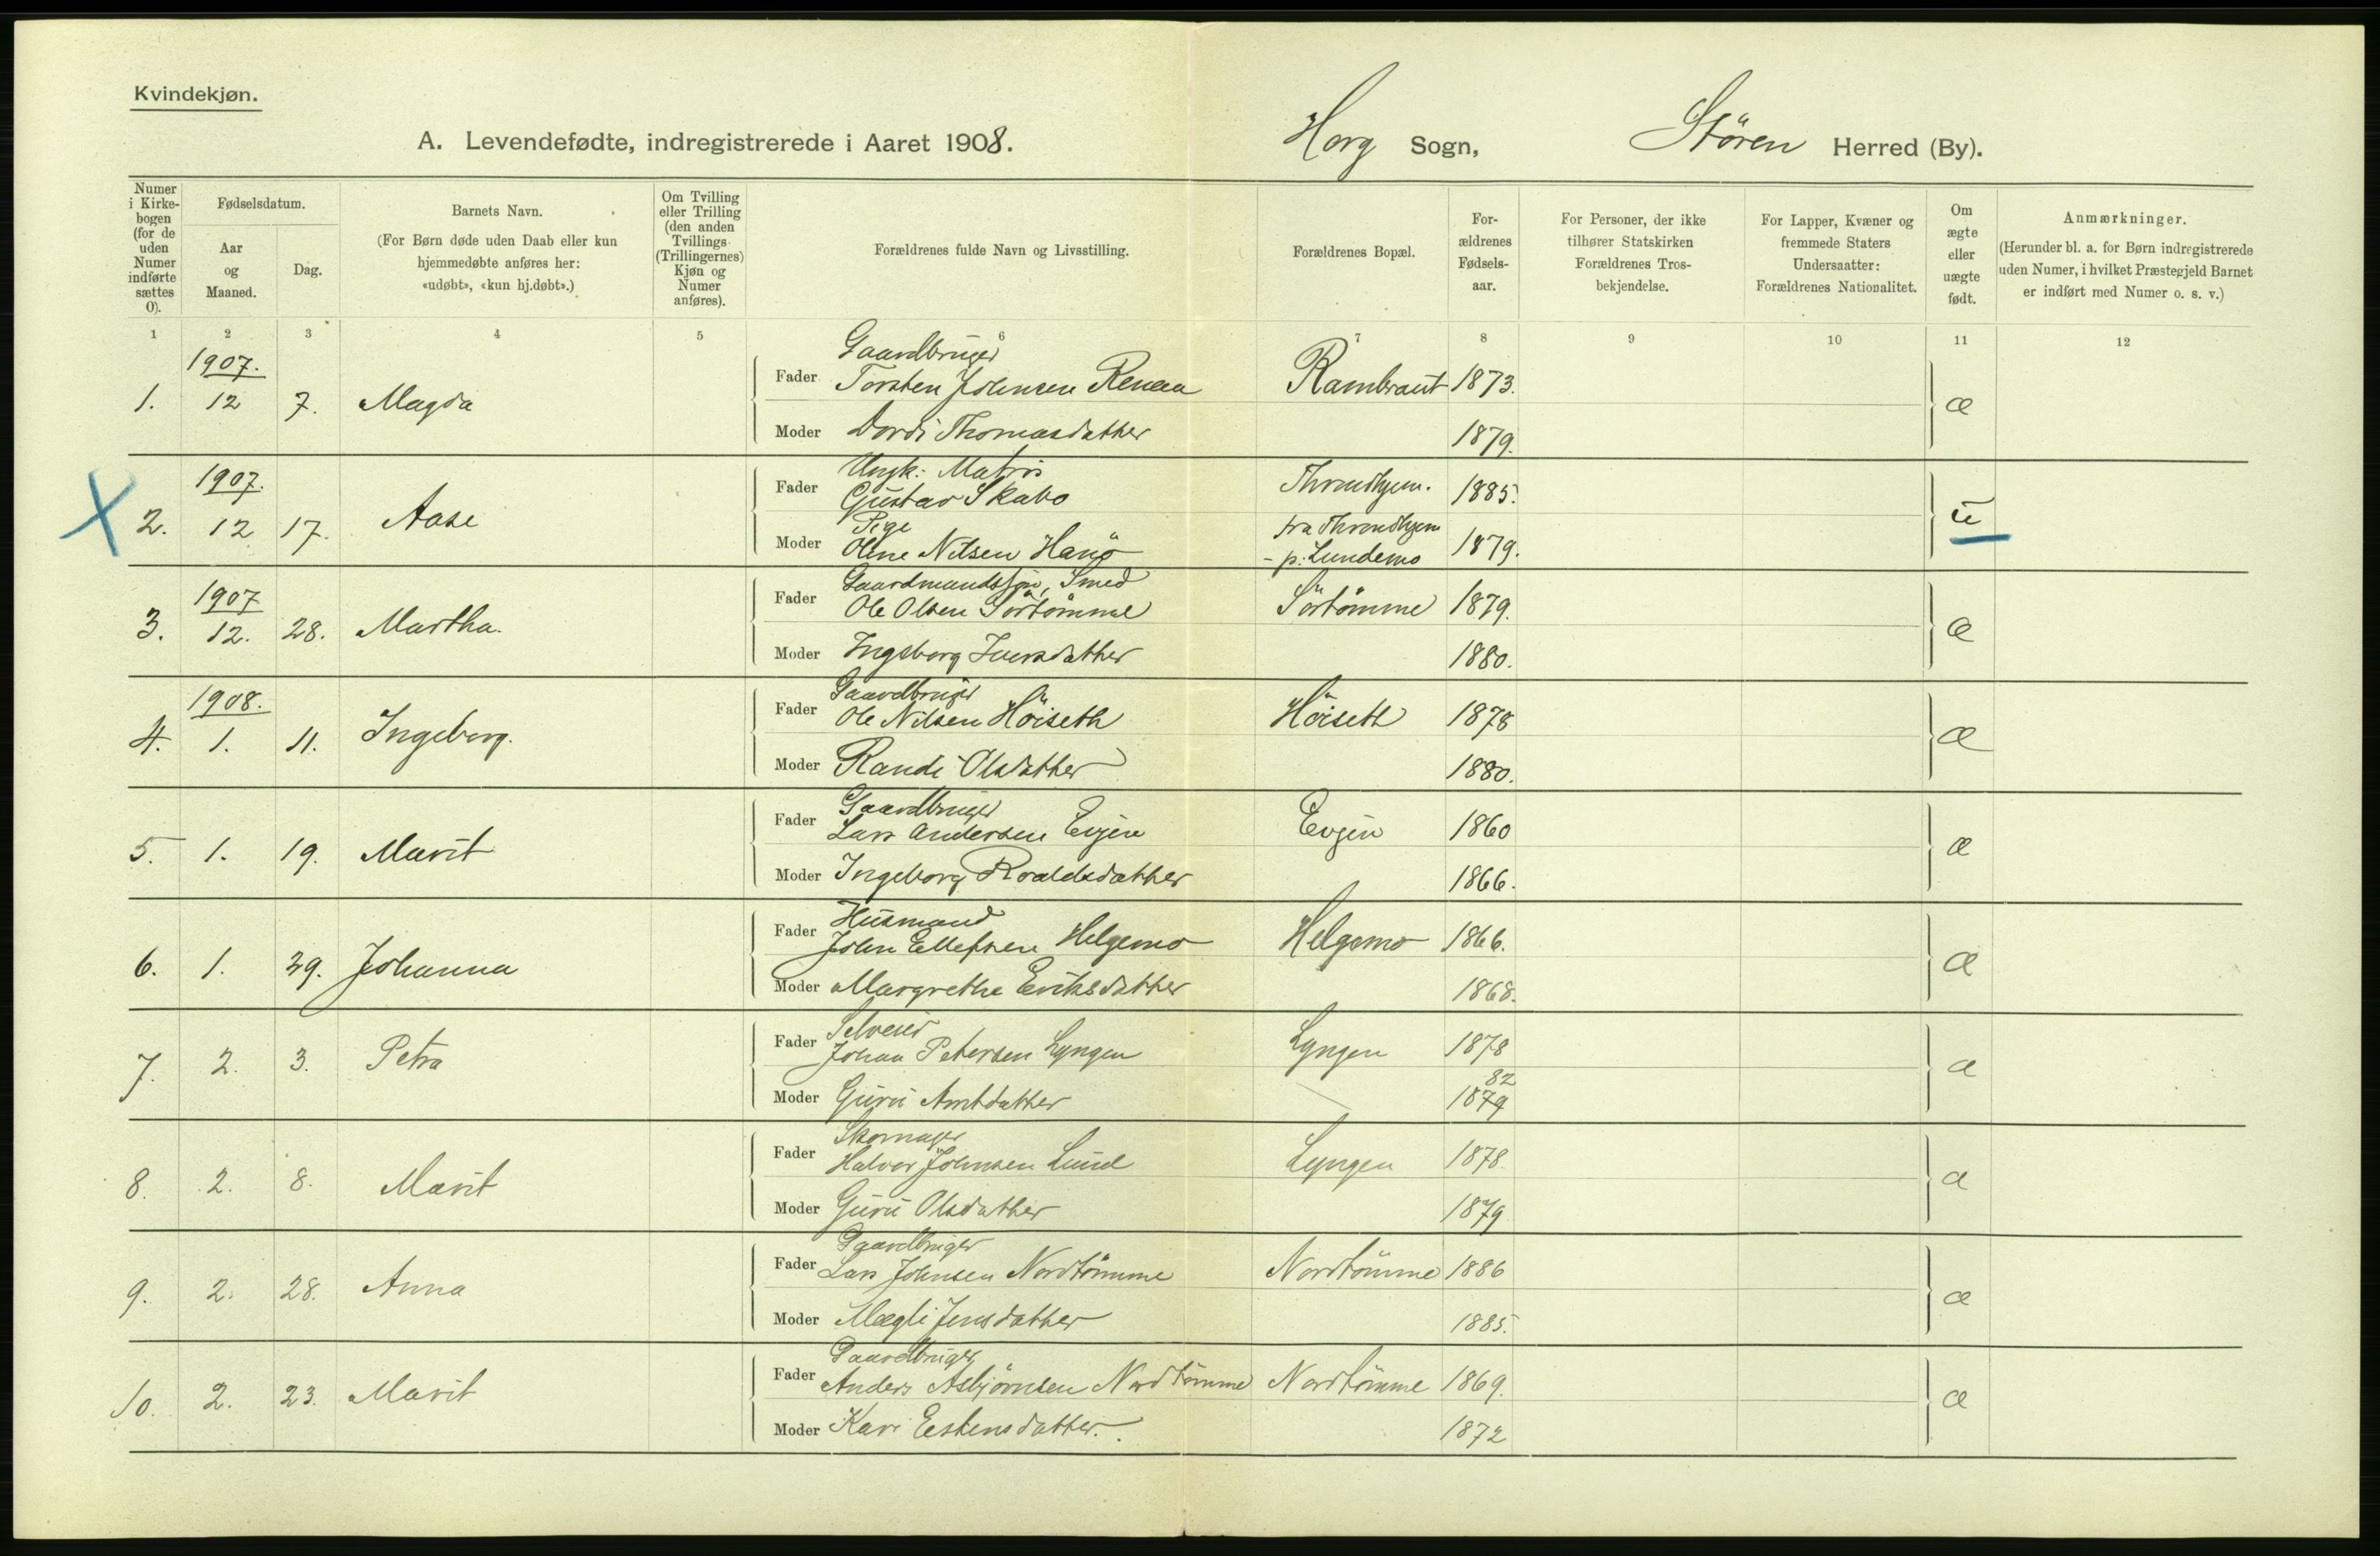 Kvindekjøn.
A. Levendefødte, indregistrerede i Aaret 1908. Horg Sogn, Støren Herred (By).
Numer i Kirkebogen (for de uden Numer indførte sættes 0).
Fødselsdatum.
Aar og Maaned.
Dag.
Barnets Navn.
(For Børn døde uden Daab eller kun hjemmedøbte anføres her: «udøbt», «kun hj.døbt».)
Om Tvilling eller Trilling (den anden Tvillings (Trillingernes) Kjøn og Numer anføres).
Forældrenes fulde Navn og Livsstilling.
Forældrenes Bopæl.
Forældrenes Fødselsaar.
For Personer, der ikke tilhører Statskirken Forældrenes Trosbekjendelse.
For Lapper, Kvæner og fremmede Staters Undersaatter: Forældrenes Nationalitet.
Om ægte eller uægte født.
Anmærkninger.
(Herunder bl. a. for Børn indregistrerede uden Numer, i hvilket Præstegjeld Barnet er indført med Numer o. s. v.)
1 2 3 4 5 6 7 8 9 10 11 12
1907. Gaardbruger
1. 12 7. Magda Fader Torsten Johnsen Renaa Rambraut 1873. æ
Moder Dordi Thomasdatter 1879.
1907. Ungk: Matros
X 2. 12 17. Aase Fader Gustav Skabo Throndhjem. 1885. u
Pige fra Throndhjem
Moder Oline Nilsen Hanö - p. Lundemo 1879.
1907 Gaardmandssøn, Smed
3. 12. 28. Martha. Fader Ole Olsen Sörtömme Sörtömme 1879. æ
Moder Ingeborg Iversdatter 1880.
1908. Gaardbruger
4. 1. 11. Ingeborg. Fader Ole Nilsen Höiseth Höiseth 1878 æ
Moder Randi Olsdatter 1880.
Gaardbruger
5. 1. 19. Marit Fader Lars Andersen Evjen Evjen 1860 æ
Moder Ingeborg Roaldsdatter 1866.
Husmand
6. 1. 29. Johanna Fader John Ellefsen Helgemo Helgemo 1866. æ
Moder Margrethe Eriksdatter 1868.
Selveier
7. 2. 3. Petra Fader Johan Petersen Lyngen Lyngen 1878 æ
82
Moder Guru Arntdatter 1879
Skomager
8. 2. 8. Marit Fader Halvor Johnsen Lund Lyngen 1878. æ
Moder Guru Olsdatter 1879
Gaardbruger
9. 2. 28. Anna Fader Lars Johnsen Nordtömme Nordtömme 1886 æ
Moder Magli Jensdatter 1885.
Gaardbruger
10. 2. 23. Marit Fader Anders Asbjörnsen Nordtömme Nordtömme 1869. æ
Moder Kari Estensdatter. 1872